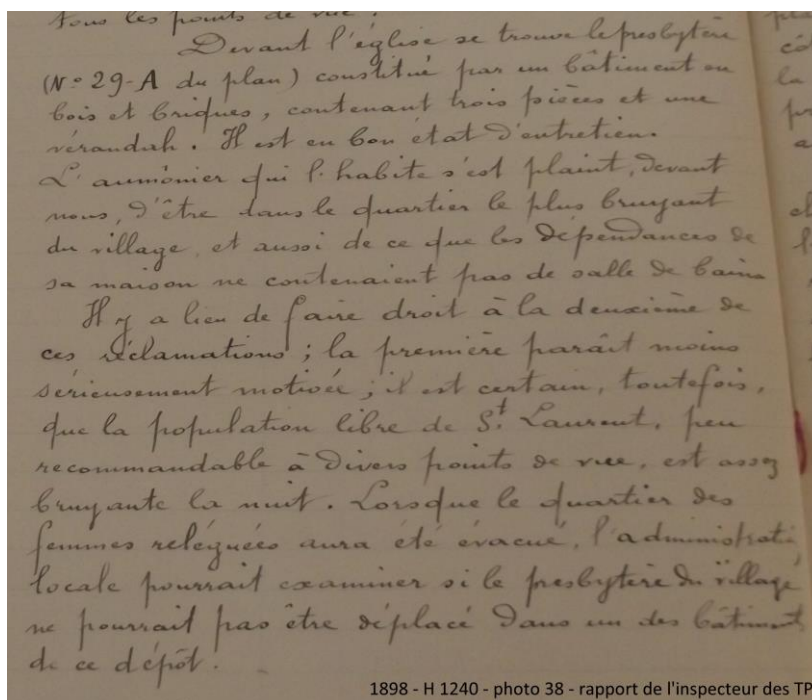 tous les points de vue.
Devant l'église se trouve le presbytère
(N° 29-A du plan) constitué par un bâtiment en
bois et briques, contenant trois pièces et une
vérandah. Il est en bon état d'entretien.
L'aumônier qui l'habite s'est plaint, devant
nous, d'être dans le quartier le plus bruyant
du village, et aussi de ce que les dépendances de
sa maison ne contenaient pas de salle de bains
Il y a lieu de faire droit à la deuxième de
ces réclamations ; la première paraît moins
sérieusement motivée ; il est certain, toutefois,
que la population libre de St. Laurent, peu
recommandable à divers points de vue, est assez
bruyante la nuit. Lorsque le quartier des
femmes reléguées aura été évacué, l'administrati
locale pourrait examiner si le presbytère du village
ne pourrait pas être déplacé dans un des bâtiments
de ce dépôt.
1898 - H 1240 - photo 38 - rapport de l'inspecteur des TP